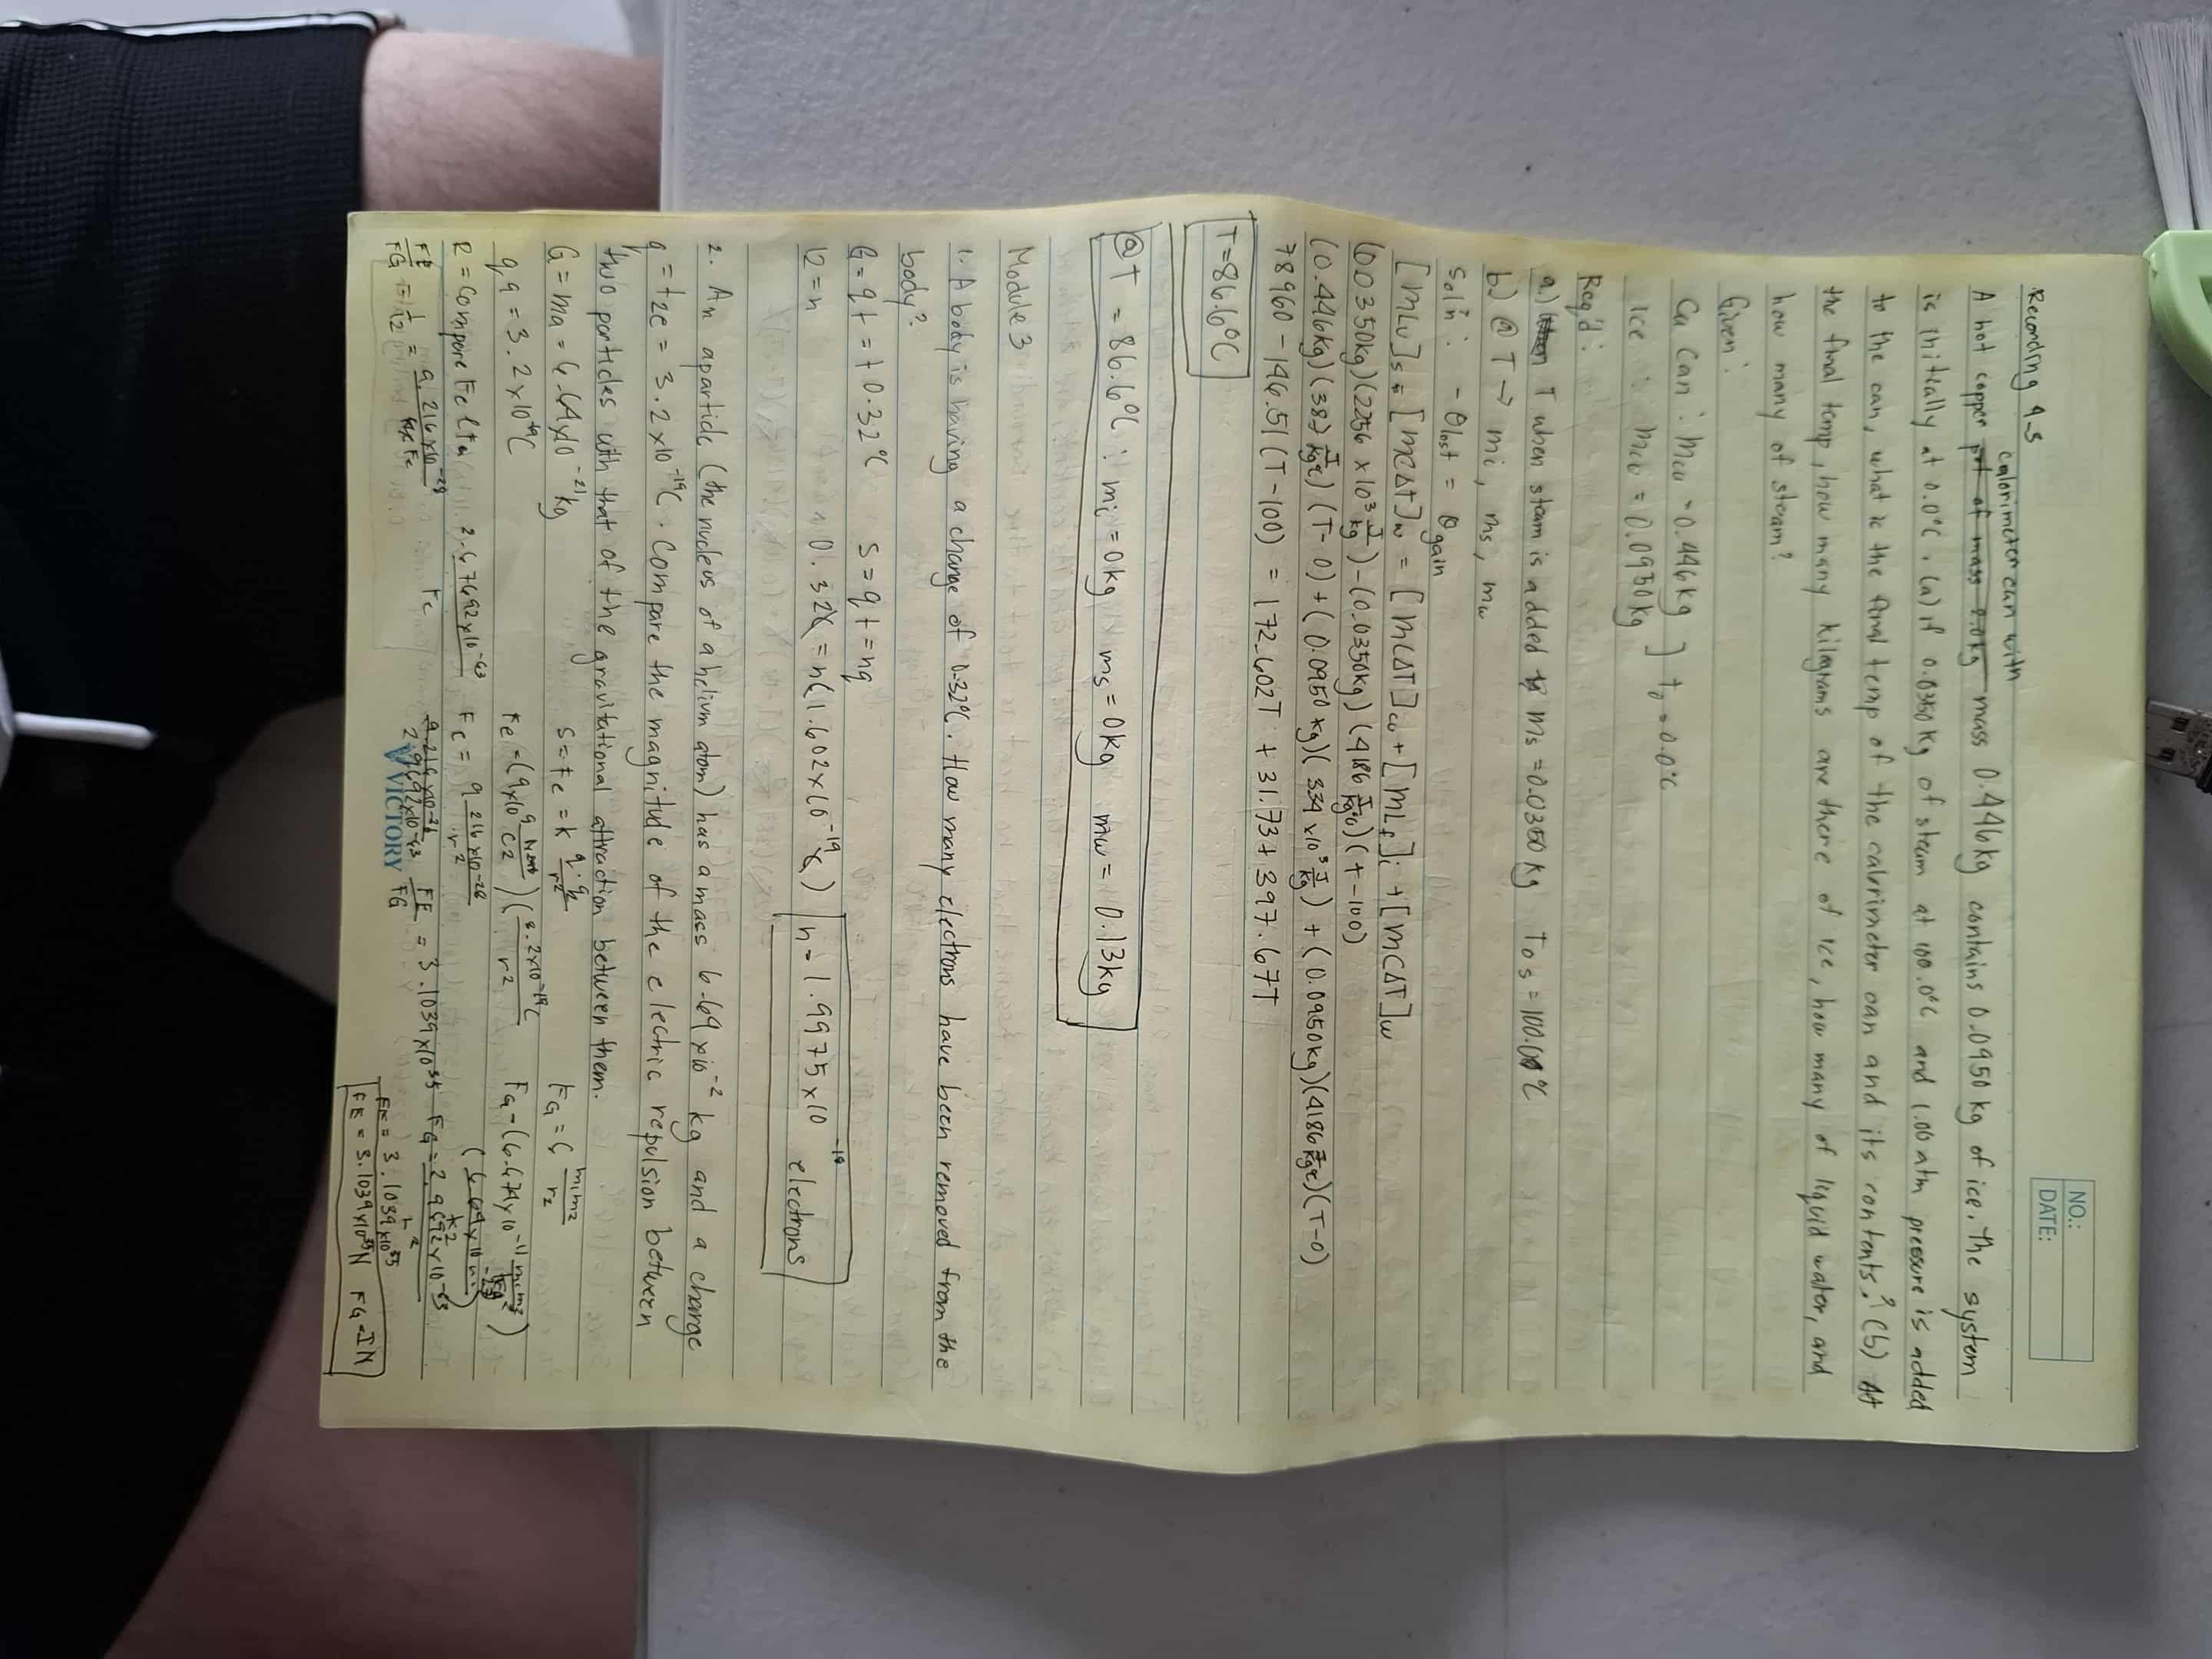 NO.:
DATE:
Recording 4-3
calorimeter can with
A hot copper pot of mass 2.0kg mass 0.446kg contains 0.0950 kg of ice. The system
is initially at 0.0°C. (a) if 0.0350 kg of steam at 100.0°C and 1.00 atm pressure is added
to the can, what is the final temp of the calorimeter can and its contents? (b) At
the final temp, how many kilograms are there of ice, how many of liquid water, and
how many of steam?
Given:
Cu Can : mcu = 0.446kg ] to = 0.0°C
Ice : mcu = 0.0950kg
Req'd:
a.) when T when steam is added ms = 0.0350 kg Tos = 100.00°C
b.) @ T → mi, ms, mw
Sol'n: - Qlost = Qgain
[mLv]s = [mCΔt]w = [mCΔT]cu + [mLf]i + [mCΔT]w
(0.0350kg)(2256 x10³ J/kg) - (0.0350kg) (4186 J/kg°C)(T-100)
(0.446kg)(387 J/kg°C) (T-0) + (0.0950 kg)(334 x10³ J/kg) + (0.0950kg)(4186 J/kg°C)(T-0)
78960 - 146.51 (T-100) = 172.602T + 31.73 + 397.67T
T=86.6°C
@T = 86.6°C : mi = 0kg ms = 0kg mw = 0.13kg
Module 3
1. A body is having a change of 0.32°C. How many electrons have been removed from the
body?
G = qt = +0.32°C S = qt = nq
12 = n 0.32C = n(1.602x10⁻¹⁹C) n = 1.9975x10⁻¹⁸ electrons
2. An aparticle (the nucleus of a helium atom) has a mass 6.69 x10⁻² kg and a charge
q = +2e = 3.2x10⁻¹⁹C. Compare the magnitude of the electric repulsion between
two particles with that of the gravitational attraction between them.
G = ma = 6.64x10⁻²¹kg S = Fe = k q·q/r² FG = G m1m2/r2
qa = 3.2x10⁻¹⁹C Fe = (9x10⁹ /C2)(3.2x10⁻¹⁹C/r²) FG = (6.674x10⁻¹¹)
R = Compare Fe 2.67692x10⁻⁶³/Fe Fe = 9.216x10⁻²⁸/r²
FE/FG = 1/12 = 9.216x10⁻²⁸ 9.216x10⁻²⁸/2.9692x10⁻⁶³ FE/FG = 3.1039x10³⁵ FG = 2.9692x10⁻⁶³/r²
VICTORY
FE = 3.1039x10³⁵
FE = 3.1039x10³⁵N FG = 1N